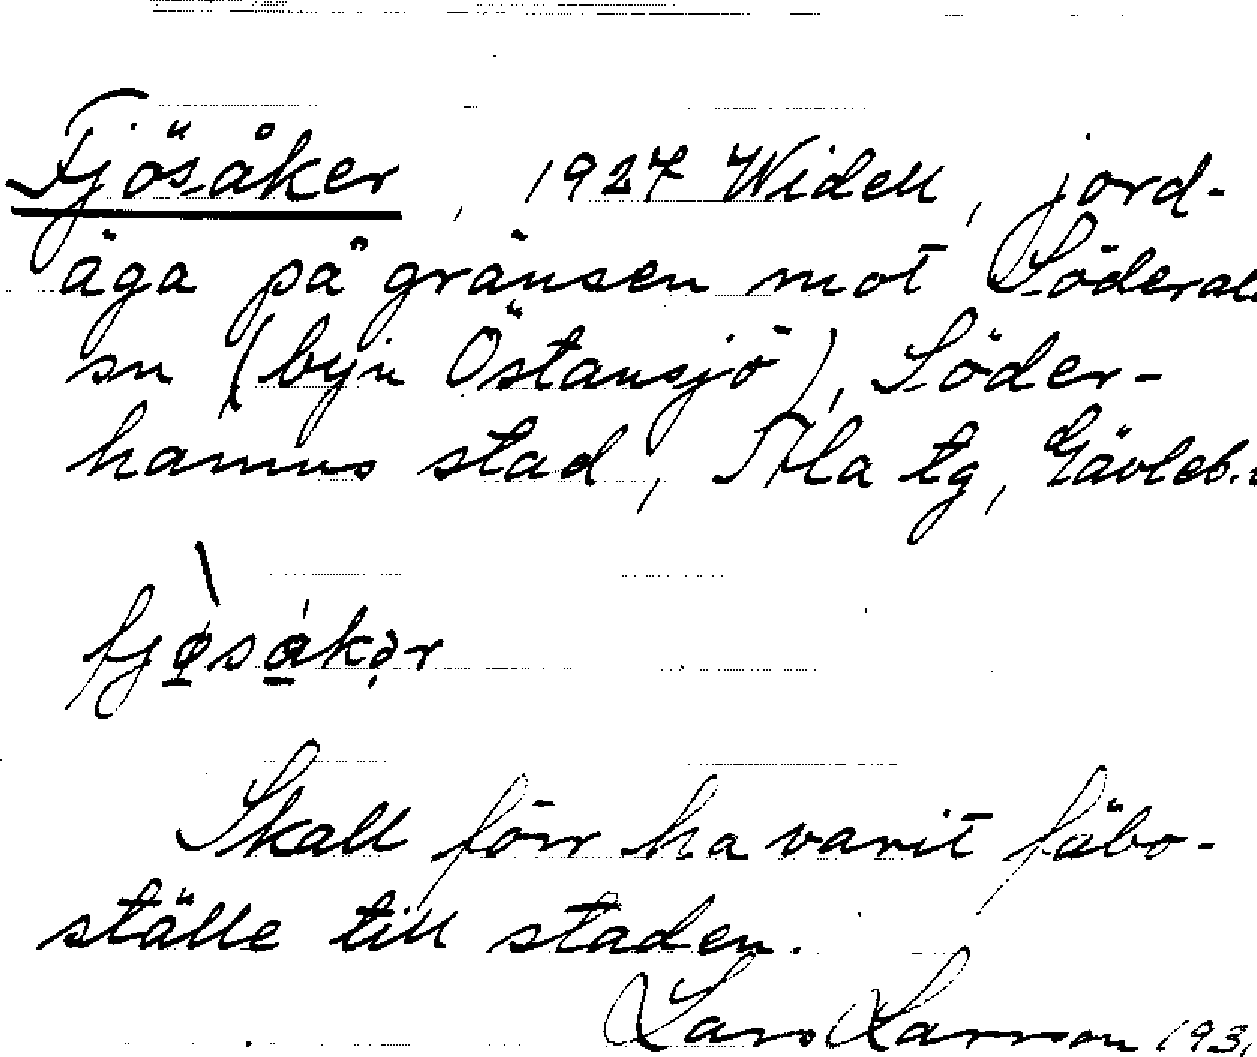 Fjösåker, 1927 Widell, jord-
äga på gränsen mot Söderala
sn (byn Östansjö), Söder-
hamns stad, Ala tg, Gävleb.
fjøsåkər
Skall förr ha varit fäbo-
ställe till staden.
Lars Larsson 193